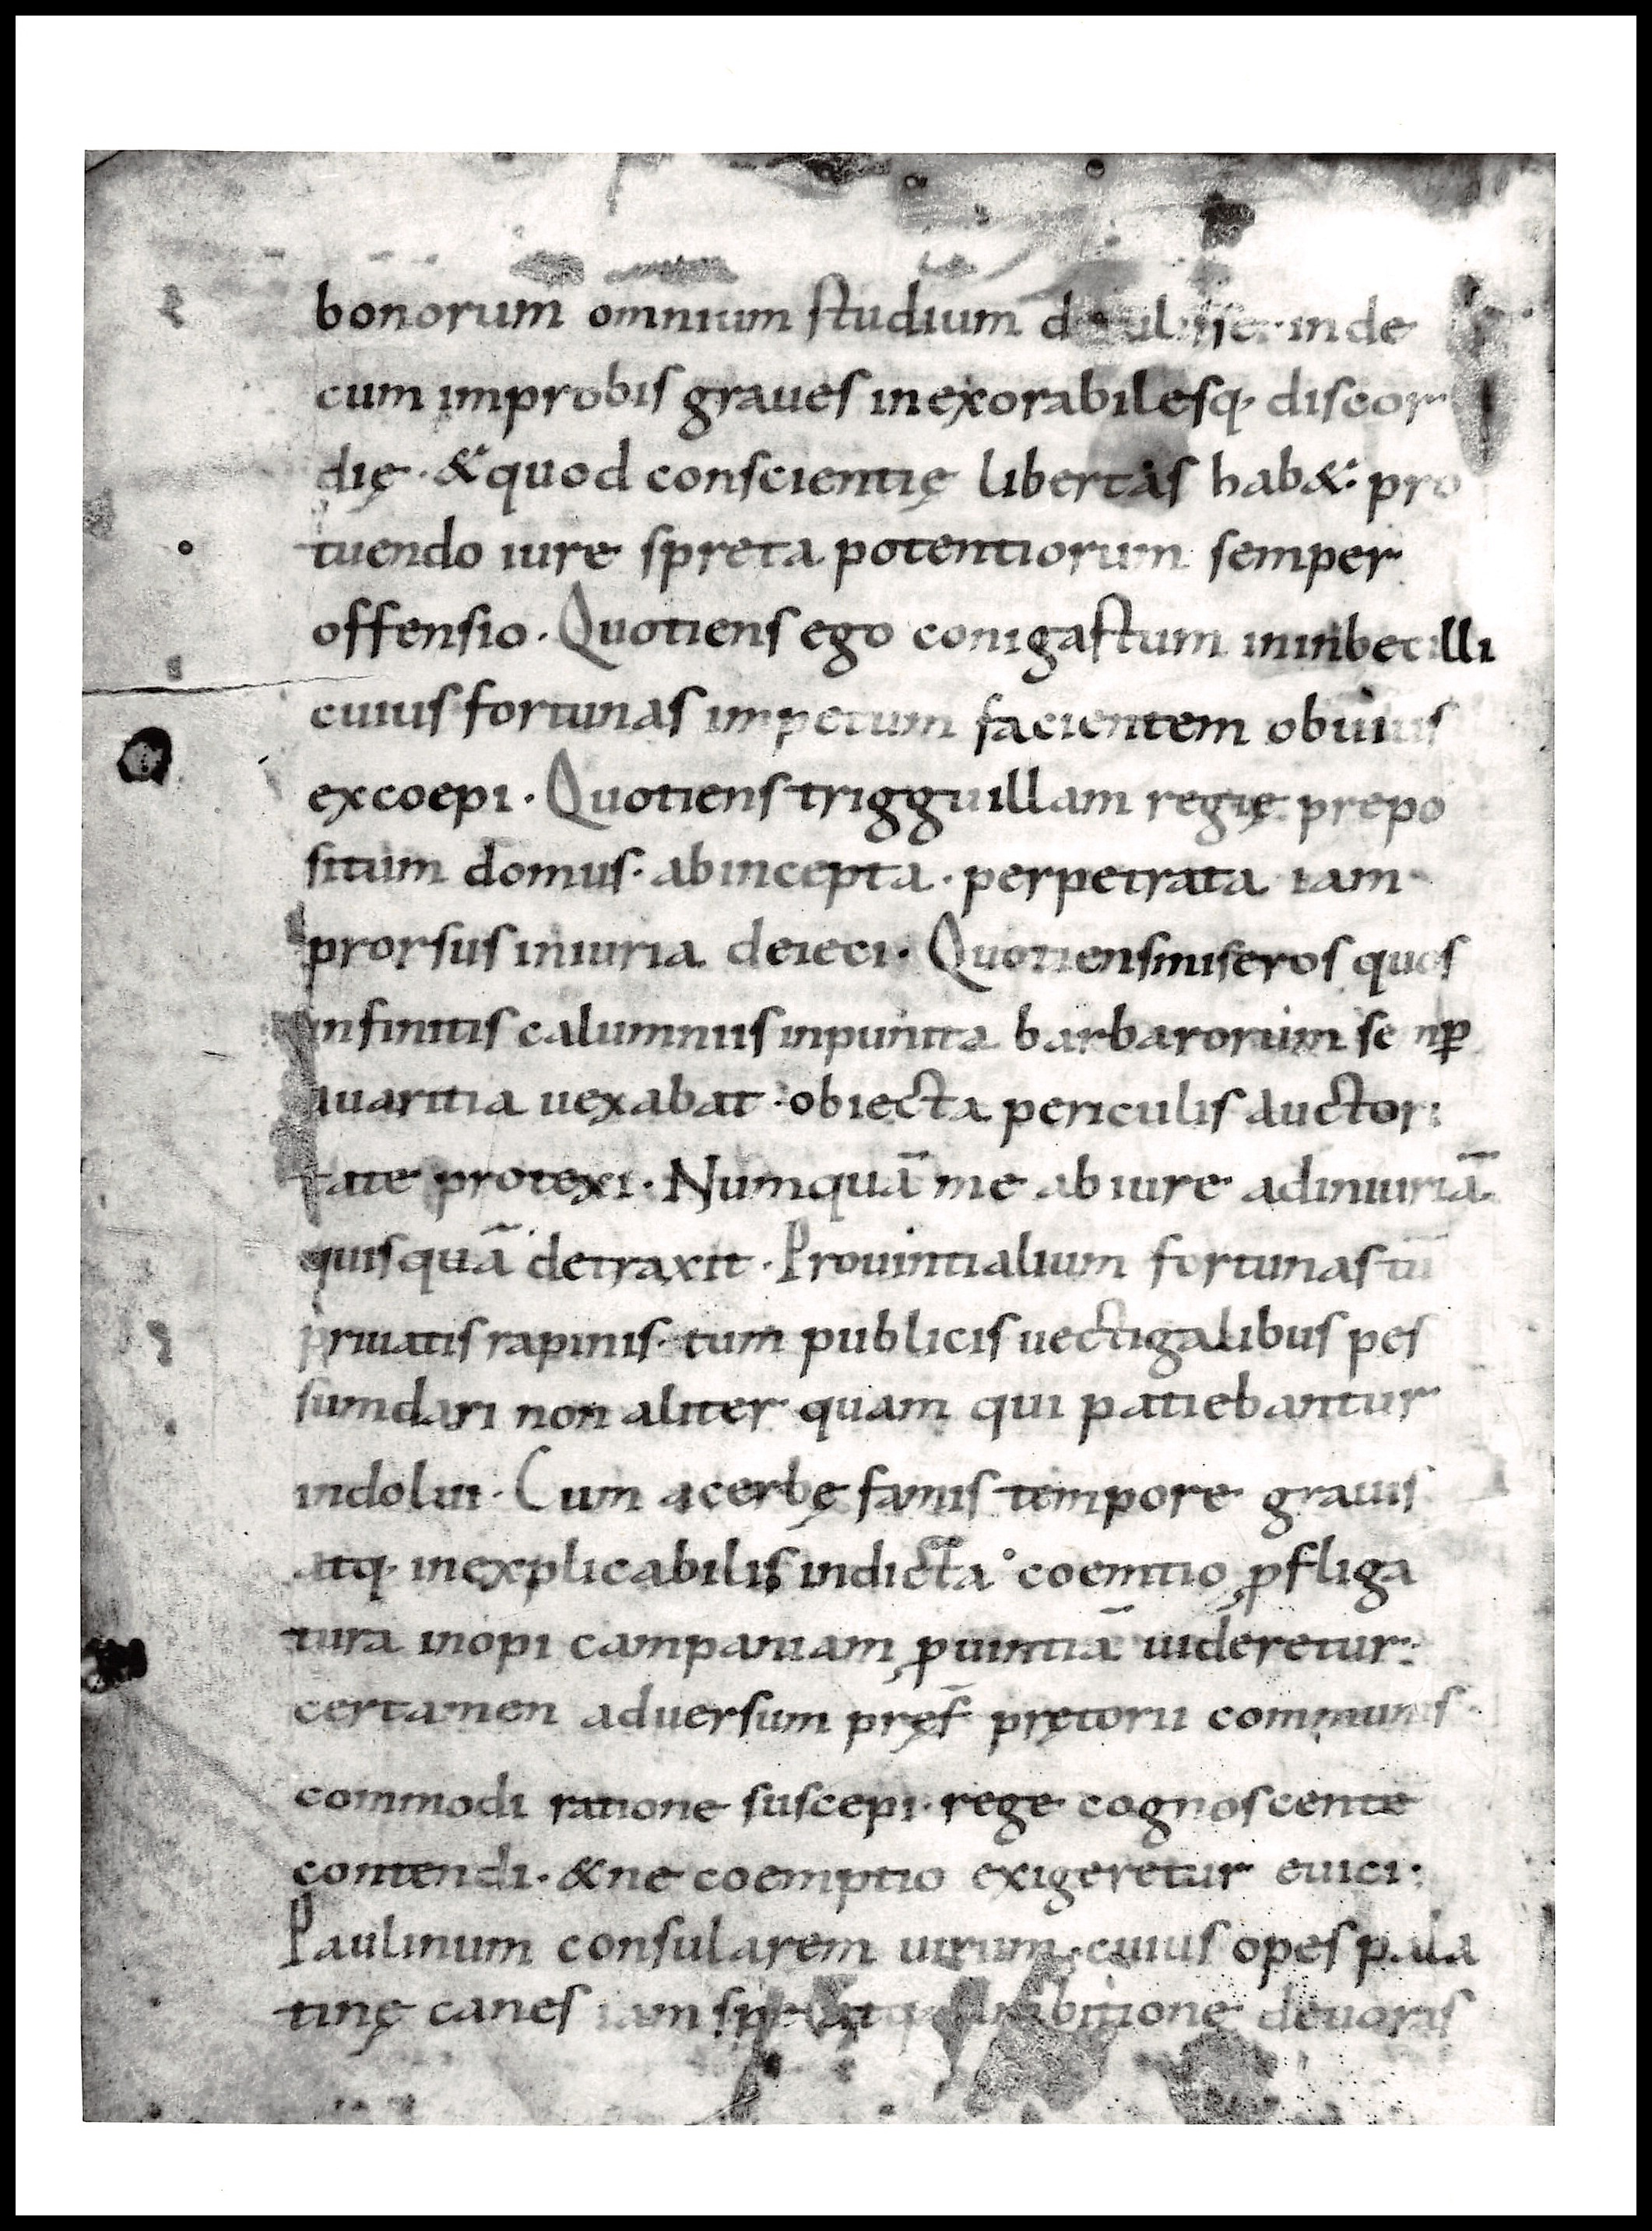 bonorum omnium studium inde
cum improbis graues inexorabilesq· discor
dię · & quod conscientię libertas hab& · pro
tuendo iure spreta potentiorum semper
offensio · Quotiens ego conigastum in inbecilli
cuius fortunas impetum facientem obuius
excoepi · Quotiens trigguillam regię prepo
situm domus · ab incepta · perpetrata iam
prorsus iniuria deieci · Quotiens miseros quos
infinitis calumniis inpunita barbarorum semꝑ
auaritia uexabat · obiecta periculis auctori
tate protexi · Numquā me ab iure ad iniuriā
quisquā detraxit · Prouintialium fortunas tū
priuatis rapinis · tum publicis uectigalibus pes
sumdari non aliter quam qui patiebantur
indolui · Cum acerbę famis tempore grauis
atq· inexplicabilis indicta coemtio ꝓfliga
tura inopi campaniam ꝓuintiā uideretur ·
certamen aduersum pręf̄ pretorii communis
commodi ratione suscepi · rege cognoscente
contendi · & ne coemptio exigeretur euici ·
Paulinum consularem uirum · cuius opes pala
tinę canes iam ambitione deuoras